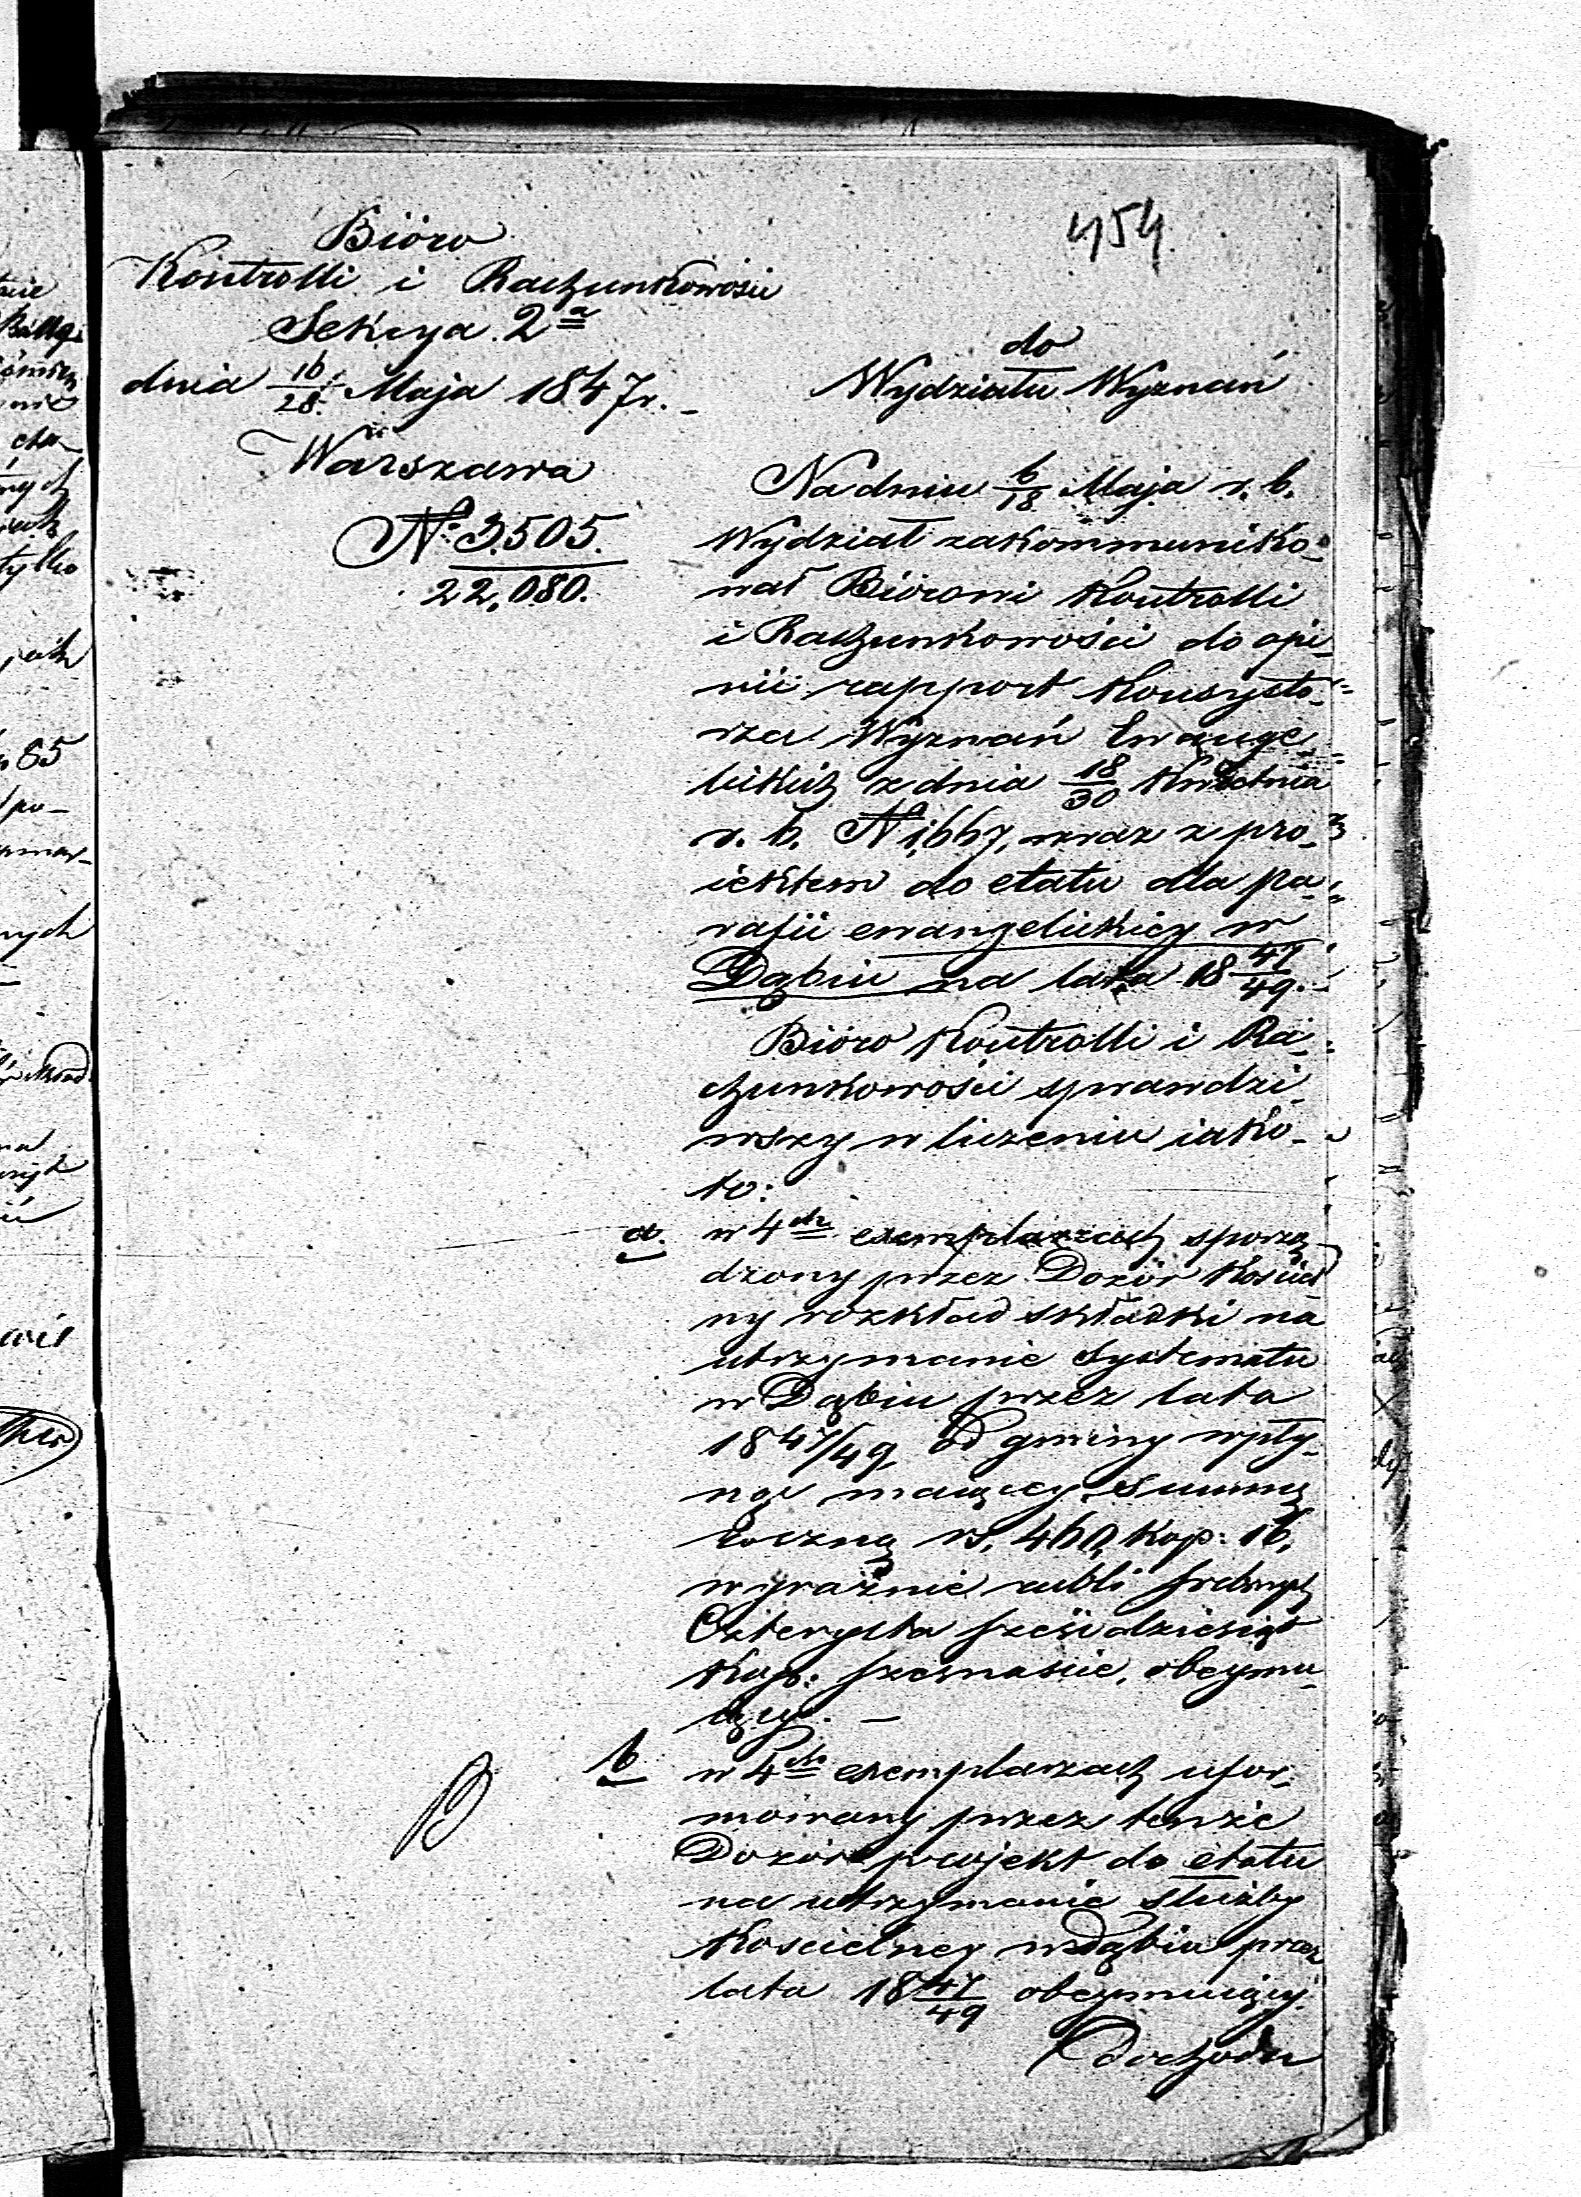 454.
Bióro
Kontrolli i Rachunkowości
Sekcya 2a
dnia 16/28 Maja 1847 r.
Warszawa
No 3.505.
22,080.
do
Wydziału Wyznań
Na dniu 6/18 Maja r. b.
Wydział zakommuniko-
wał Biórowi Kontrolli
i Rachunkowości do opi-
nii rapport Konsysto-
rza Wyznań Ewange-
lickich z dnia 18/30 Kwietnia
r. b. No 1,667, wraz z pro-
iektem do etatu dla pa-
rafii ewangelickiey w
Dąbiu na lata 18 47/49.
Bióro Kontrolli i Ra-
chunkowości sprawdzi-
wszy w liczeniu iako-
to:
a. w 4ch exemplarzach sporzą-
dzony przez Dozór Kościel
ny rozkład składki na
utrzymanie Systematu
w Dąbiu przez lata
1847/49 od gminy wpły-
nąć maiącey, Summę
roczną rs. 460, kop: 16,
wyraźnie rubli srebrnych
Czterysta sześćdziesiąt
kop: szesnaście, obeymu-
iący. —
b w 4ch exemplarzach ufor-
mowany przez tenże
Dozór projekt do etatu
na utrzymanie służby
Kościelney w Dąbiu przez
lata 18 47/49 obeymuiący.
Dochodu